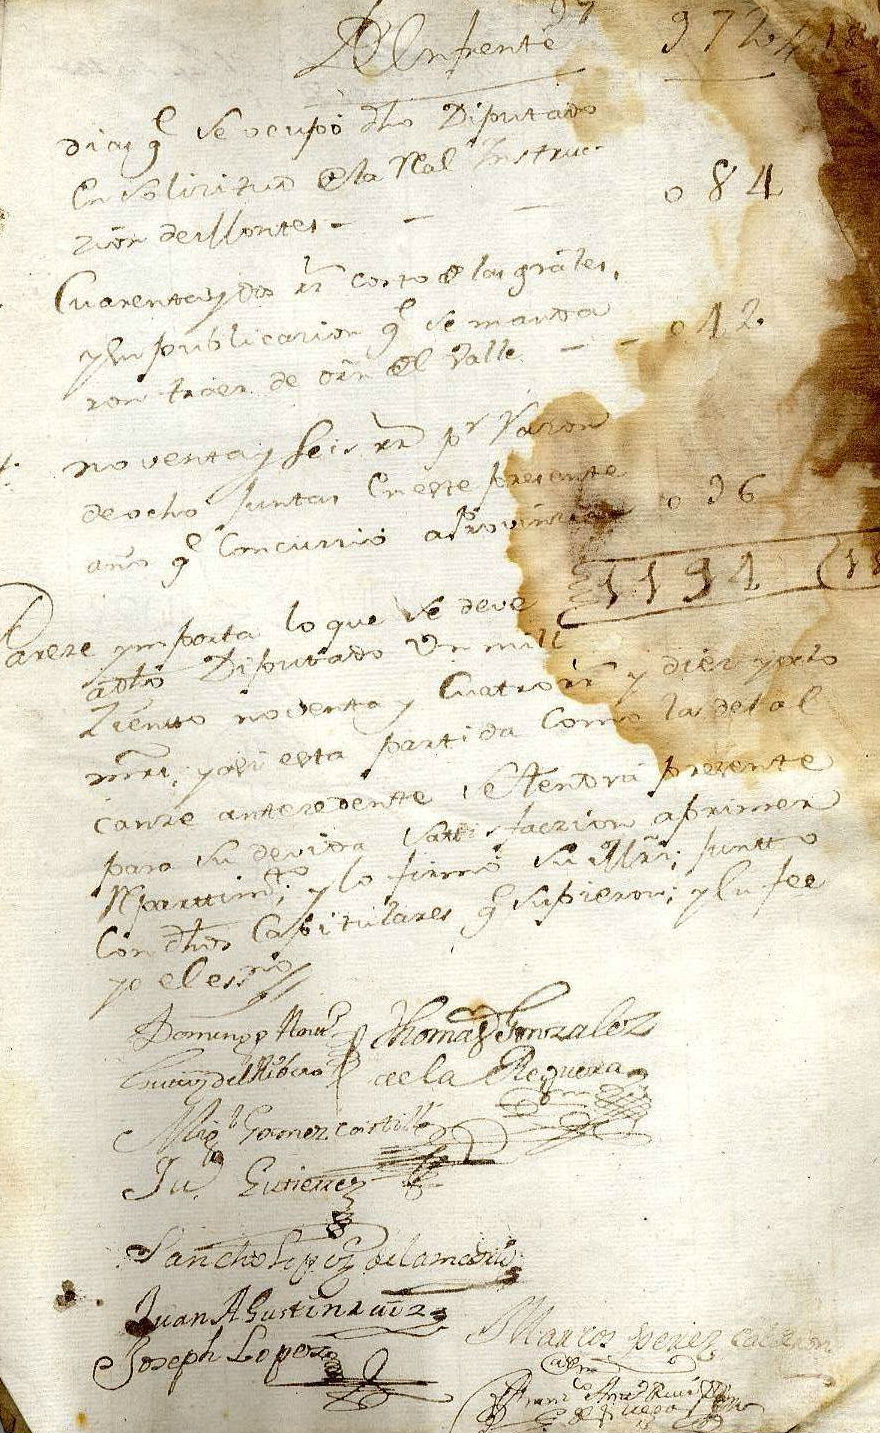 Del Enfrente 972 „ 18
dias q̃ se ocupo dho Diputado
En Solicitud de la Real Instruc-
zion de Montes - - - 084
Cuarenta y dos rr̃ costo de las
y su publicacion q̃ se manda
ron traer de orn̄ del Valle - - 042
noventa y seis rr̃ pr Razon
de ocho Juntas En este presente
año q̃ Concurrio a Provinzia 096
1194
Pareze ymporta lo que se deve
a dho Diputado Un mill
Ziento noventa y Cuatro rr̃ y diez y ocho
mrs; y asi esta partida Como la del al
canze antezedente se tendra presente
para su devida Sattisfaczion a primer
Reparttimto; y lo firmó su Mrd; juntto
Con dhos Capitulares q̃ supieron; y En fee
yo el essno
Domingo Thomas Gonzalez
del Ribero de la Reguera
Migl Gomez castillo
Jun Gutierrez
Sancho Lopez de la madrid
Juan Agustin ruiz
Marcos perez calderon
Joseph Lopez